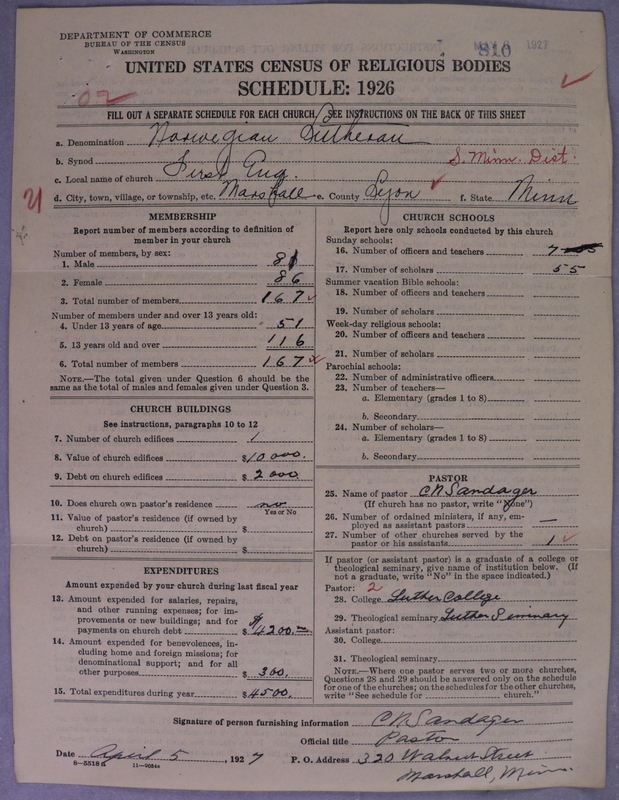 DEPARTMENT OF COMMERCE
BUREAU OF THE CENSUS
WASHINGTON
810 1927
UNITED STATES CENSUS OF RELIGIOUS BODIES
SCHEDULE: 1926
02
FILL OUT A SEPARATE SCHEDULE FOR EACH CHURCH. SEE INSTRUCTIONS ON THE BACK OF THIS SHEET
a. Denomination Norwegian Lutheran
b. Synod S. Minn. Dist.
c. Local name of church First Eng.
d. City, town, village, or township, etc. Marshall e. County Lyon f. State Minn
21
MEMBERSHIP
Report number of members according to definition of member in your church
Number of members, by sex:
1. Male 81
2. Female 86
3. Total number of members 167
Number of members under and over 13 years old:
4. Under 13 years of age 51
5. 13 years old and over 116
6. Total number of members 167
NOTE.—The total given under Question 6 should be the same as the total of males and females given under Question 3.
CHURCH BUILDINGS
See instructions, paragraphs 10 to 12
7. Number of church edifices 1
8. Value of church edifices $10000.
9. Debt on church edifices $2000
10. Does church own pastor's residence no
Yes or No
11. Value of pastor's residence (if owned by church) $
12. Debt on pastor's residence (if owned by church) $
EXPENDITURES
Amount expended by your church during last fiscal year
13. Amount expended for salaries, repairs, and other running expenses; for improvements or new buildings; and for payments on church debt $4200.
14. Amount expended for benevolences, including home and foreign missions; for denominational support; and for all other purposes $300.
15. Total expenditures during year $4500.
CHURCH SCHOOLS
Report here only schools conducted by this church
Sunday schools:
16. Number of officers and teachers 7
17. Number of scholars 55
Summer vacation Bible schools:
18. Number of officers and teachers
19. Number of scholars
Week-day religious schools:
20. Number of officers and teachers
21. Number of scholars
Parochial schools:
22. Number of administrative officers
23. Number of teachers—
a. Elementary (grades 1 to 8)
b. Secondary
24. Number of scholars—
a. Elementary (grades 1 to 8)
b. Secondary
PASTOR
25. Name of pastor C N Sandager
(If church has no pastor, write "None")
26. Number of ordained ministers, if any, employed as assistant pastors —
27. Number of other churches served by the pastor or his assistants 1
If pastor (or assistant pastor) is a graduate of a college or theological seminary, give name of institution below. (If not a graduate, write "No" in the space indicated.)
Pastor: 2
28. College Luther College
29. Theological seminary Luther Seminary
Assistant pastor:
30. College
31. Theological seminary
NOTE.—Where one pastor serves two or more churches, Questions 28 and 29 should be answered only on the schedule for one of the churches; on the schedules for the other churches, write "See schedule for church."
Signature of person furnishing information C N Sandager
Official title Pastor
Date April 5, 1927 P. O. Address 320 Walnut Street
Marshall, Minn.
8—5518a 11—9054a